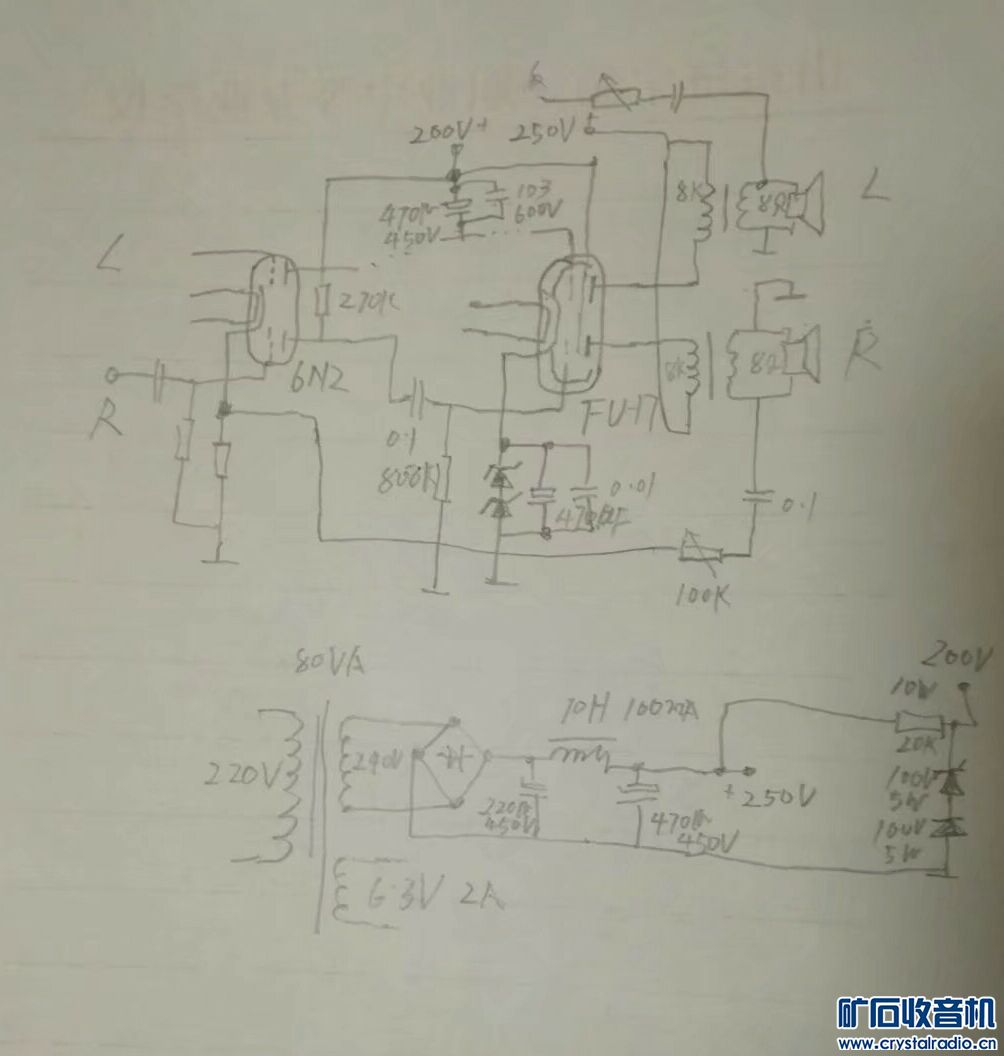 200V+ 250V
103
600V
470μ
450V
8K
8Ω
L
L
270K
6N2
R
0.1
800K
FU-17
8K
8Ω
R
0.01
470μF
0.1
100K
80VA
220V
240V
10H 100mA
220μ
450V
470μ
450V
+250V
200V
10W
20K
100V
5W
100V
5W
6.3V 2A
矿石收音机
www.crystalradio.cn